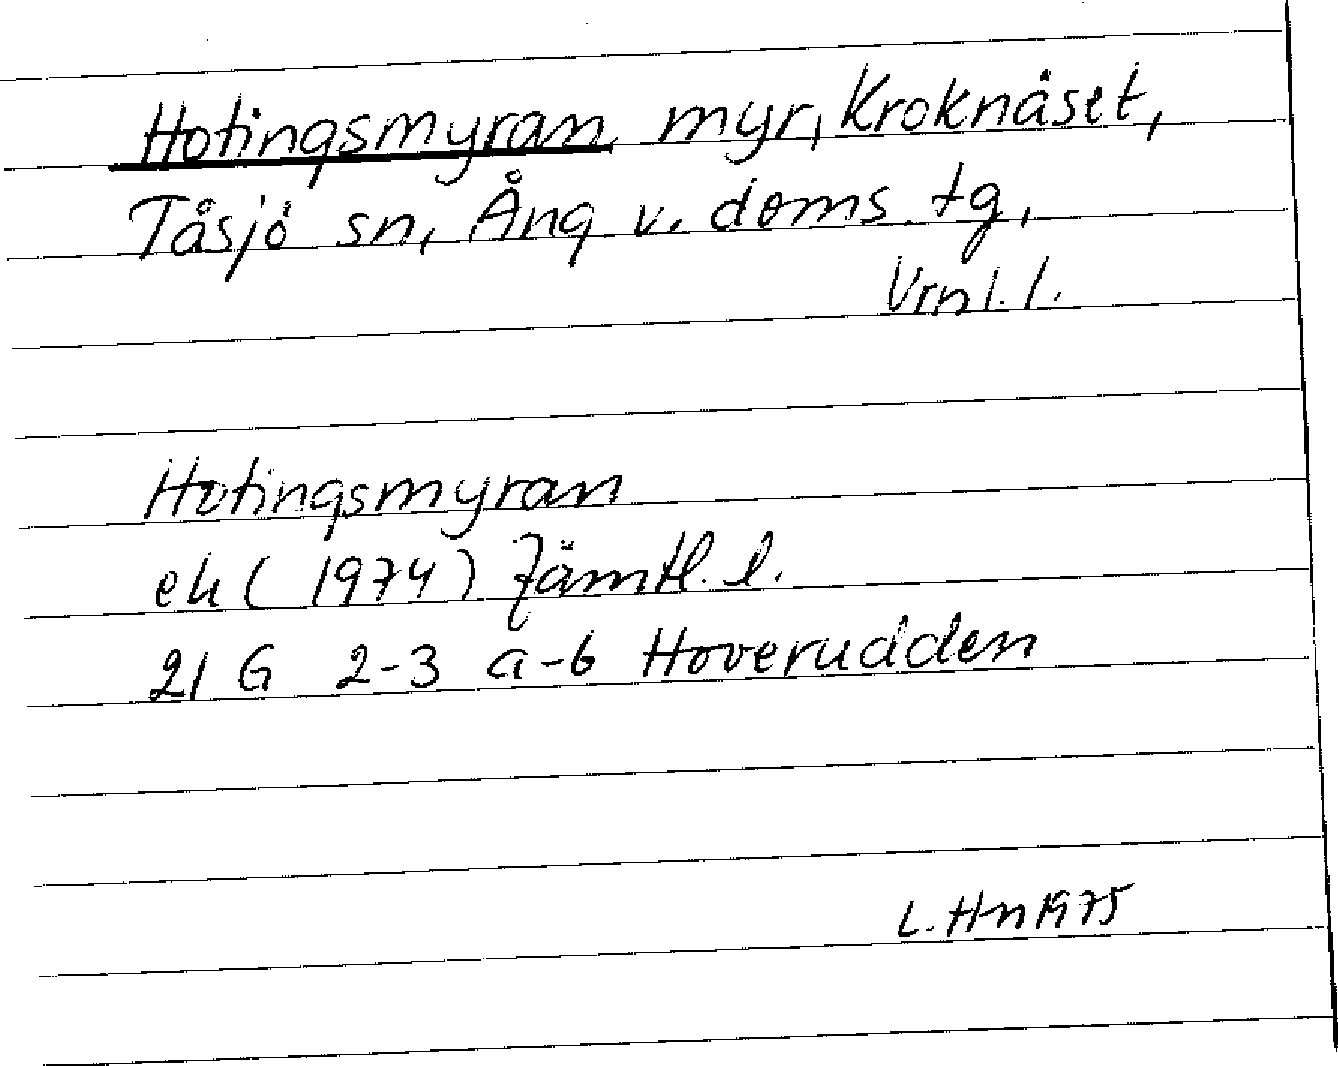 Hotingsmyran myr, Kroknäset,
Tåsjö sn, Ång v. doms. tg,
Vrnl. l.
Hotingsmyran
ek (1974) Jämtl. l.
21 G 2-3 a-b Hoverudden
L. Hn 1975